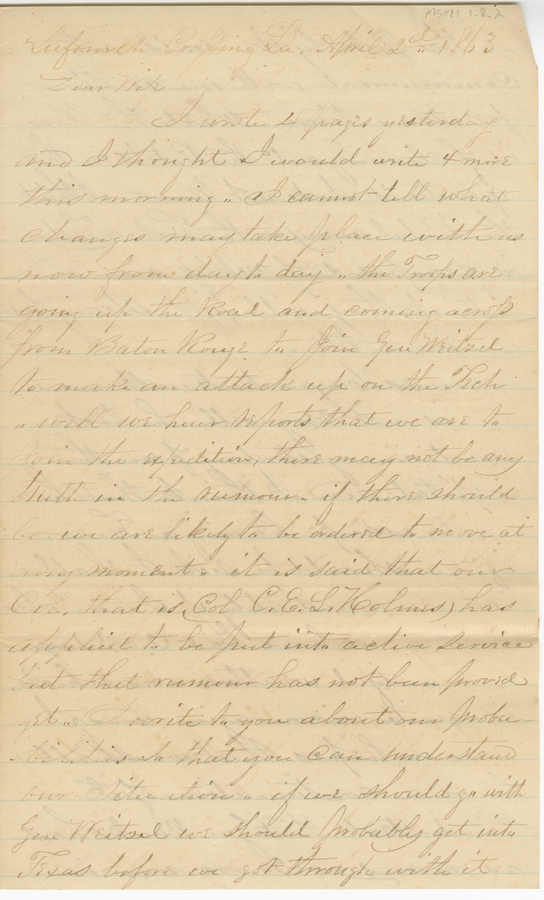 MS071 1.2.2
Lafourch Crossing La. April 2d 1863
Dear Wife
I wrote 4 pages yesterday
and I thought I would write 4 more
this morning,, I cannot tell what
changes may take place with us
now from day to day,, the Troops are
going up the Road and coming across
from Baton Rouge to Join Gen Weitzel
to make an attack up on the Tech
,, well we hear reports that we are to
join the expedition, there may not be any
truth in the rumour,, if there should
be we are likely to be ordered to move at
any moment,, it is said that our
Col. that is, (Col C. E. L. Holmes) has
applied to be put into active service
but that rumour has not been proved
yet,, I write to you about our Proba-
-bilities so that you can understand
our Situation,, if we should go with
Gen Weitzel we should Probably get into
Texas before we got through with it